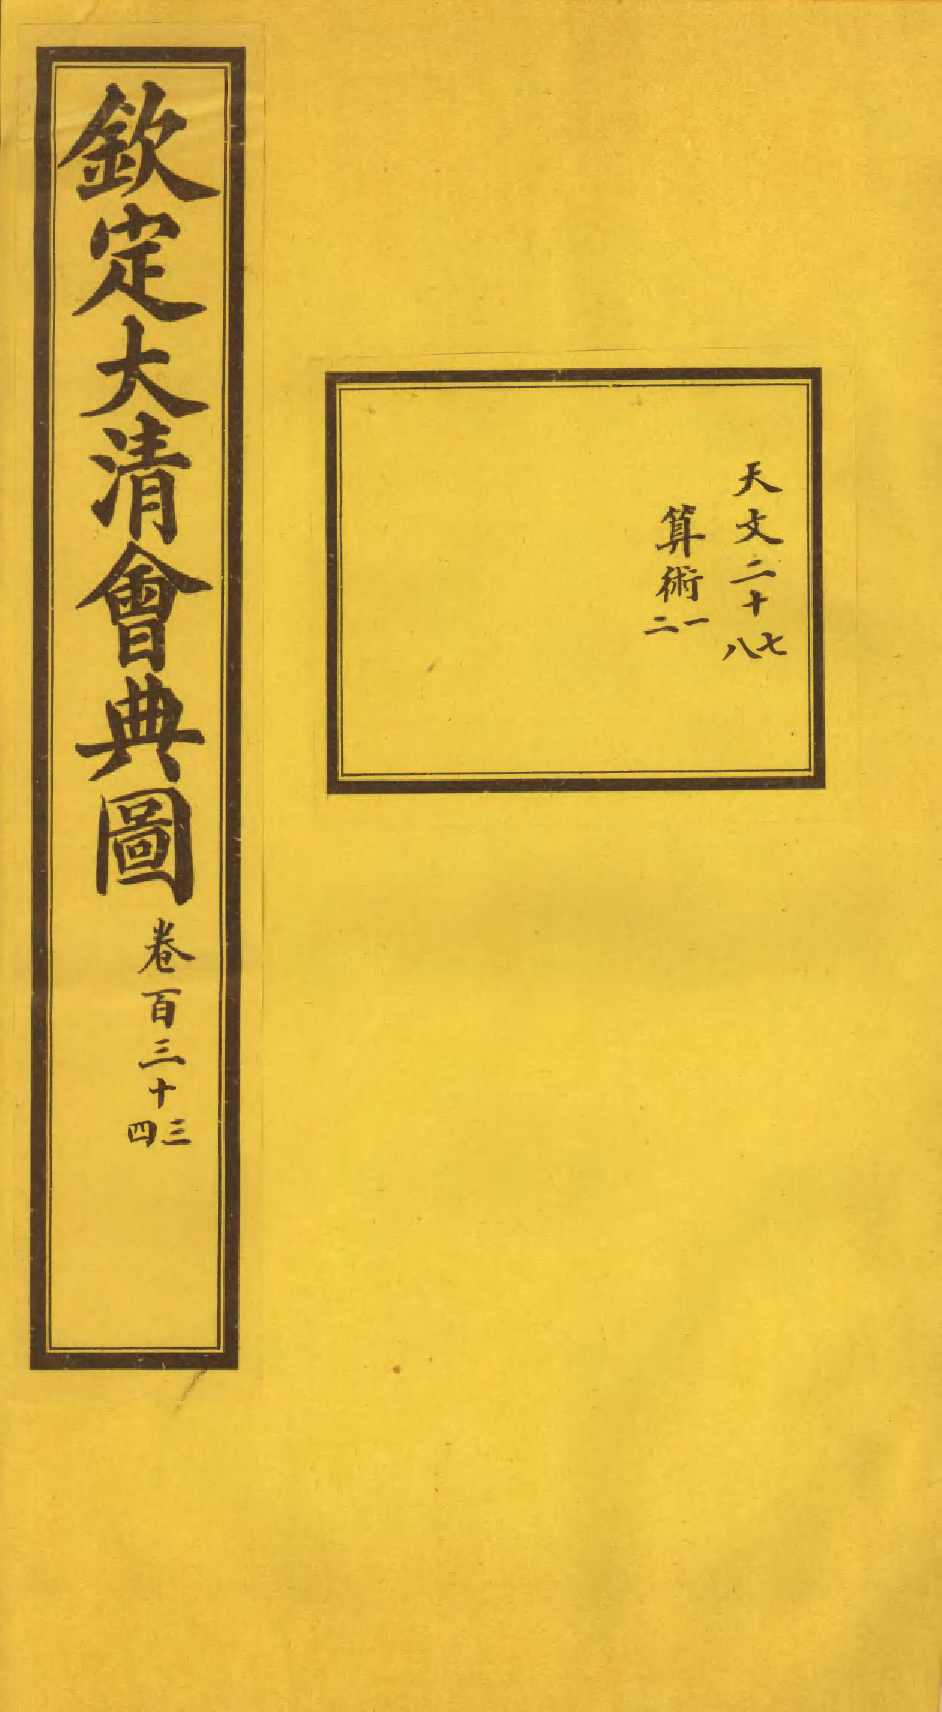 天文二十七八
算術一二
欽定大清會典圖卷百三十三四